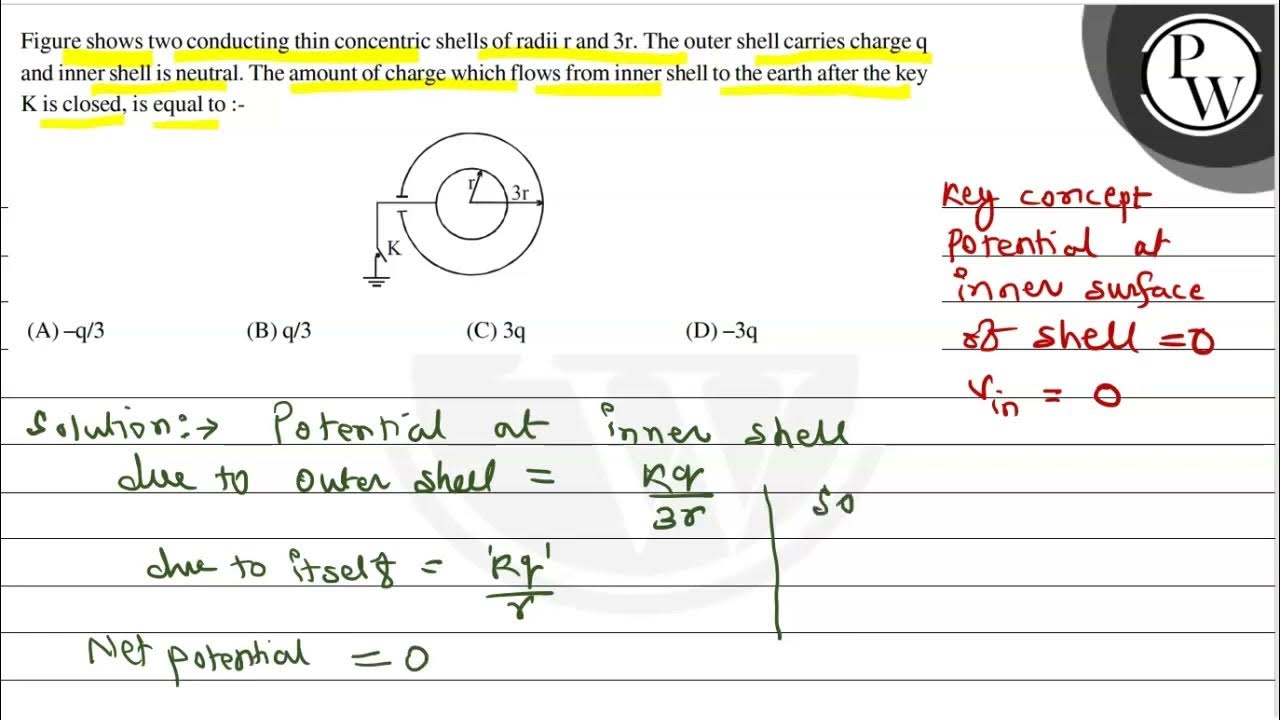 Figure shows two conducting thin concentric shells of radii r and 3r. The outer shell carries charge q
and inner shell is neutral. The amount of charge which flows from inner shell to the earth after the key
K is closed, is equal to :-
P
W
r
3r
K
(A) –q/3 (B) q/3 (C) 3q (D) –3q
Key concept
Potential at
inner surface
of shell = 0
Vin = 0
Solution:→ Potential at inner shell
due to outer shell = Kq/3r
so
due to itself = Kq'/r
Net potential = 0